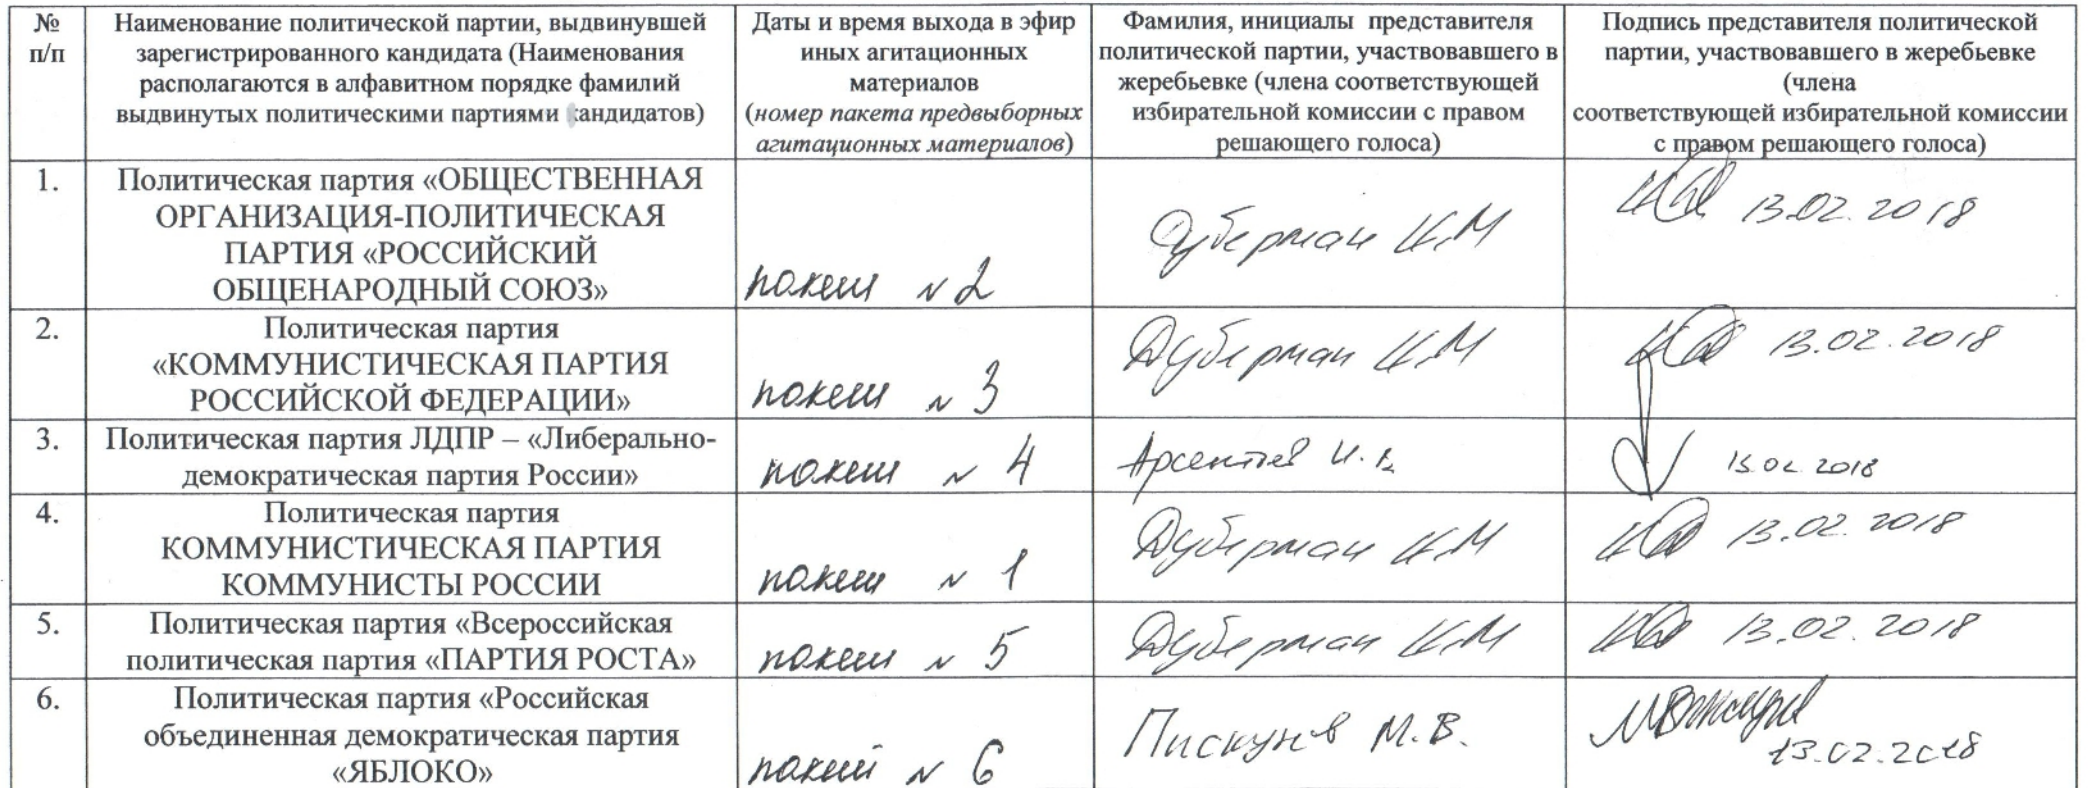 №
п/п
Наименование политической партии, выдвинувшей
зарегистрированного кандидата (Наименования
располагаются в алфавитном порядке фамилий
выдвинутых политическими партиями кандидатов)
Даты и время выхода в эфир
иных агитационных
материалов
(номер пакета предвыборных
агитационных материалов)
Фамилия, инициалы представителя
политической партии, участвовавшего в
жеребьевке (члена соответствующей
избирательной комиссии с правом
решающего голоса)
Подпись представителя политической
партии, участвовавшего в жеребьевке
(члена
соответствующей избирательной комиссии
с правом решающего голоса)
1.
Политическая партия «ОБЩЕСТВЕННАЯ
ОРГАНИЗАЦИЯ-ПОЛИТИЧЕСКАЯ
ПАРТИЯ «РОССИЙСКИЙ
ОБЩЕНАРОДНЫЙ СОЮЗ»
пакет N 2
Дуберман К.М
13.02.2018
2.
Политическая партия
«КОММУНИСТИЧЕСКАЯ ПАРТИЯ
РОССИЙСКОЙ ФЕДЕРАЦИИ»
пакет N 3
Дуберман К.М
13.02.2018
3.
Политическая партия ЛДПР – «Либерально-
демократическая партия России»
пакет N 4
Арсентьев И.В.
13.02.2018
4.
Политическая партия
КОММУНИСТИЧЕСКАЯ ПАРТИЯ
КОММУНИСТЫ РОССИИ
пакет N 1
Дуберман К.М
13.02.2018
5.
Политическая партия «Всероссийская
политическая партия «ПАРТИЯ РОСТА»
пакет N 5
Дуберман К.М
13.02.2018
6.
Политическая партия «Российская
объединенная демократическая партия
«ЯБЛОКО»
пакет N 6
Пискунов М.В.
13.02.2018